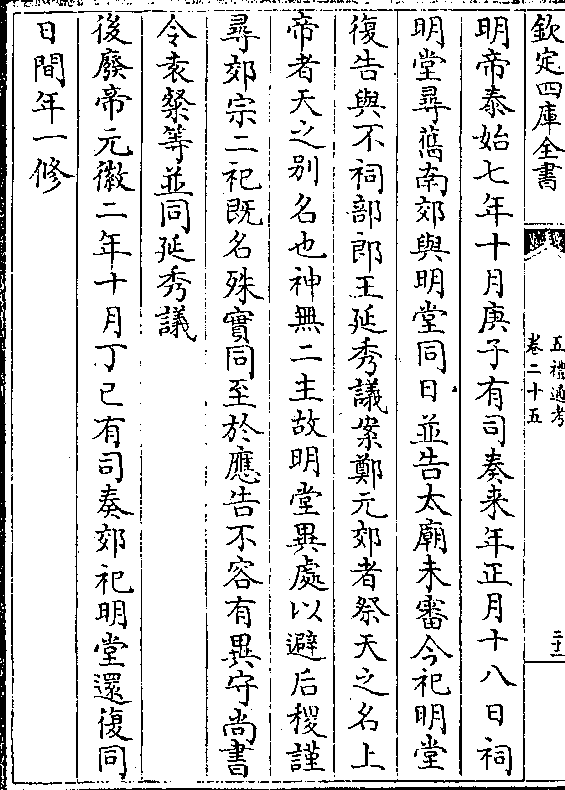 欽定四庫全書
五禮通考
卷二十五
二十二
明帝泰始七年十月庚子有司奏来年正月十八日祠
明堂尋舊南郊與明堂同日並告太廟未審今祀明堂
復告與不祠部郎王延秀議案鄭元郊者祭天之名上
帝者天之别名也神無二主故明堂異處以避后稷謹
尋郊宗二祀既名殊實同至於應告不容有異守尚書
令袁粲等並同延秀議
後廢帝元徽二年十月丁巳有司奏郊祀明堂還復同
日間年一修